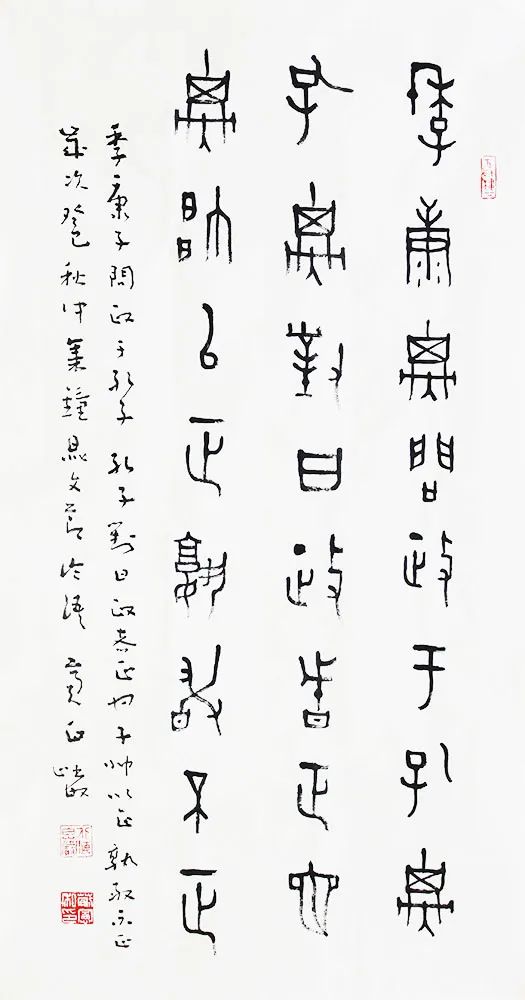 季康子問政于孔子
孔子對曰政者正也
子帥以正孰敢不正
季康子問政于孔子 孔子對曰政者正也子帅以正孰敢不正
歲次癸巳秋中集鐘鼎文節論語